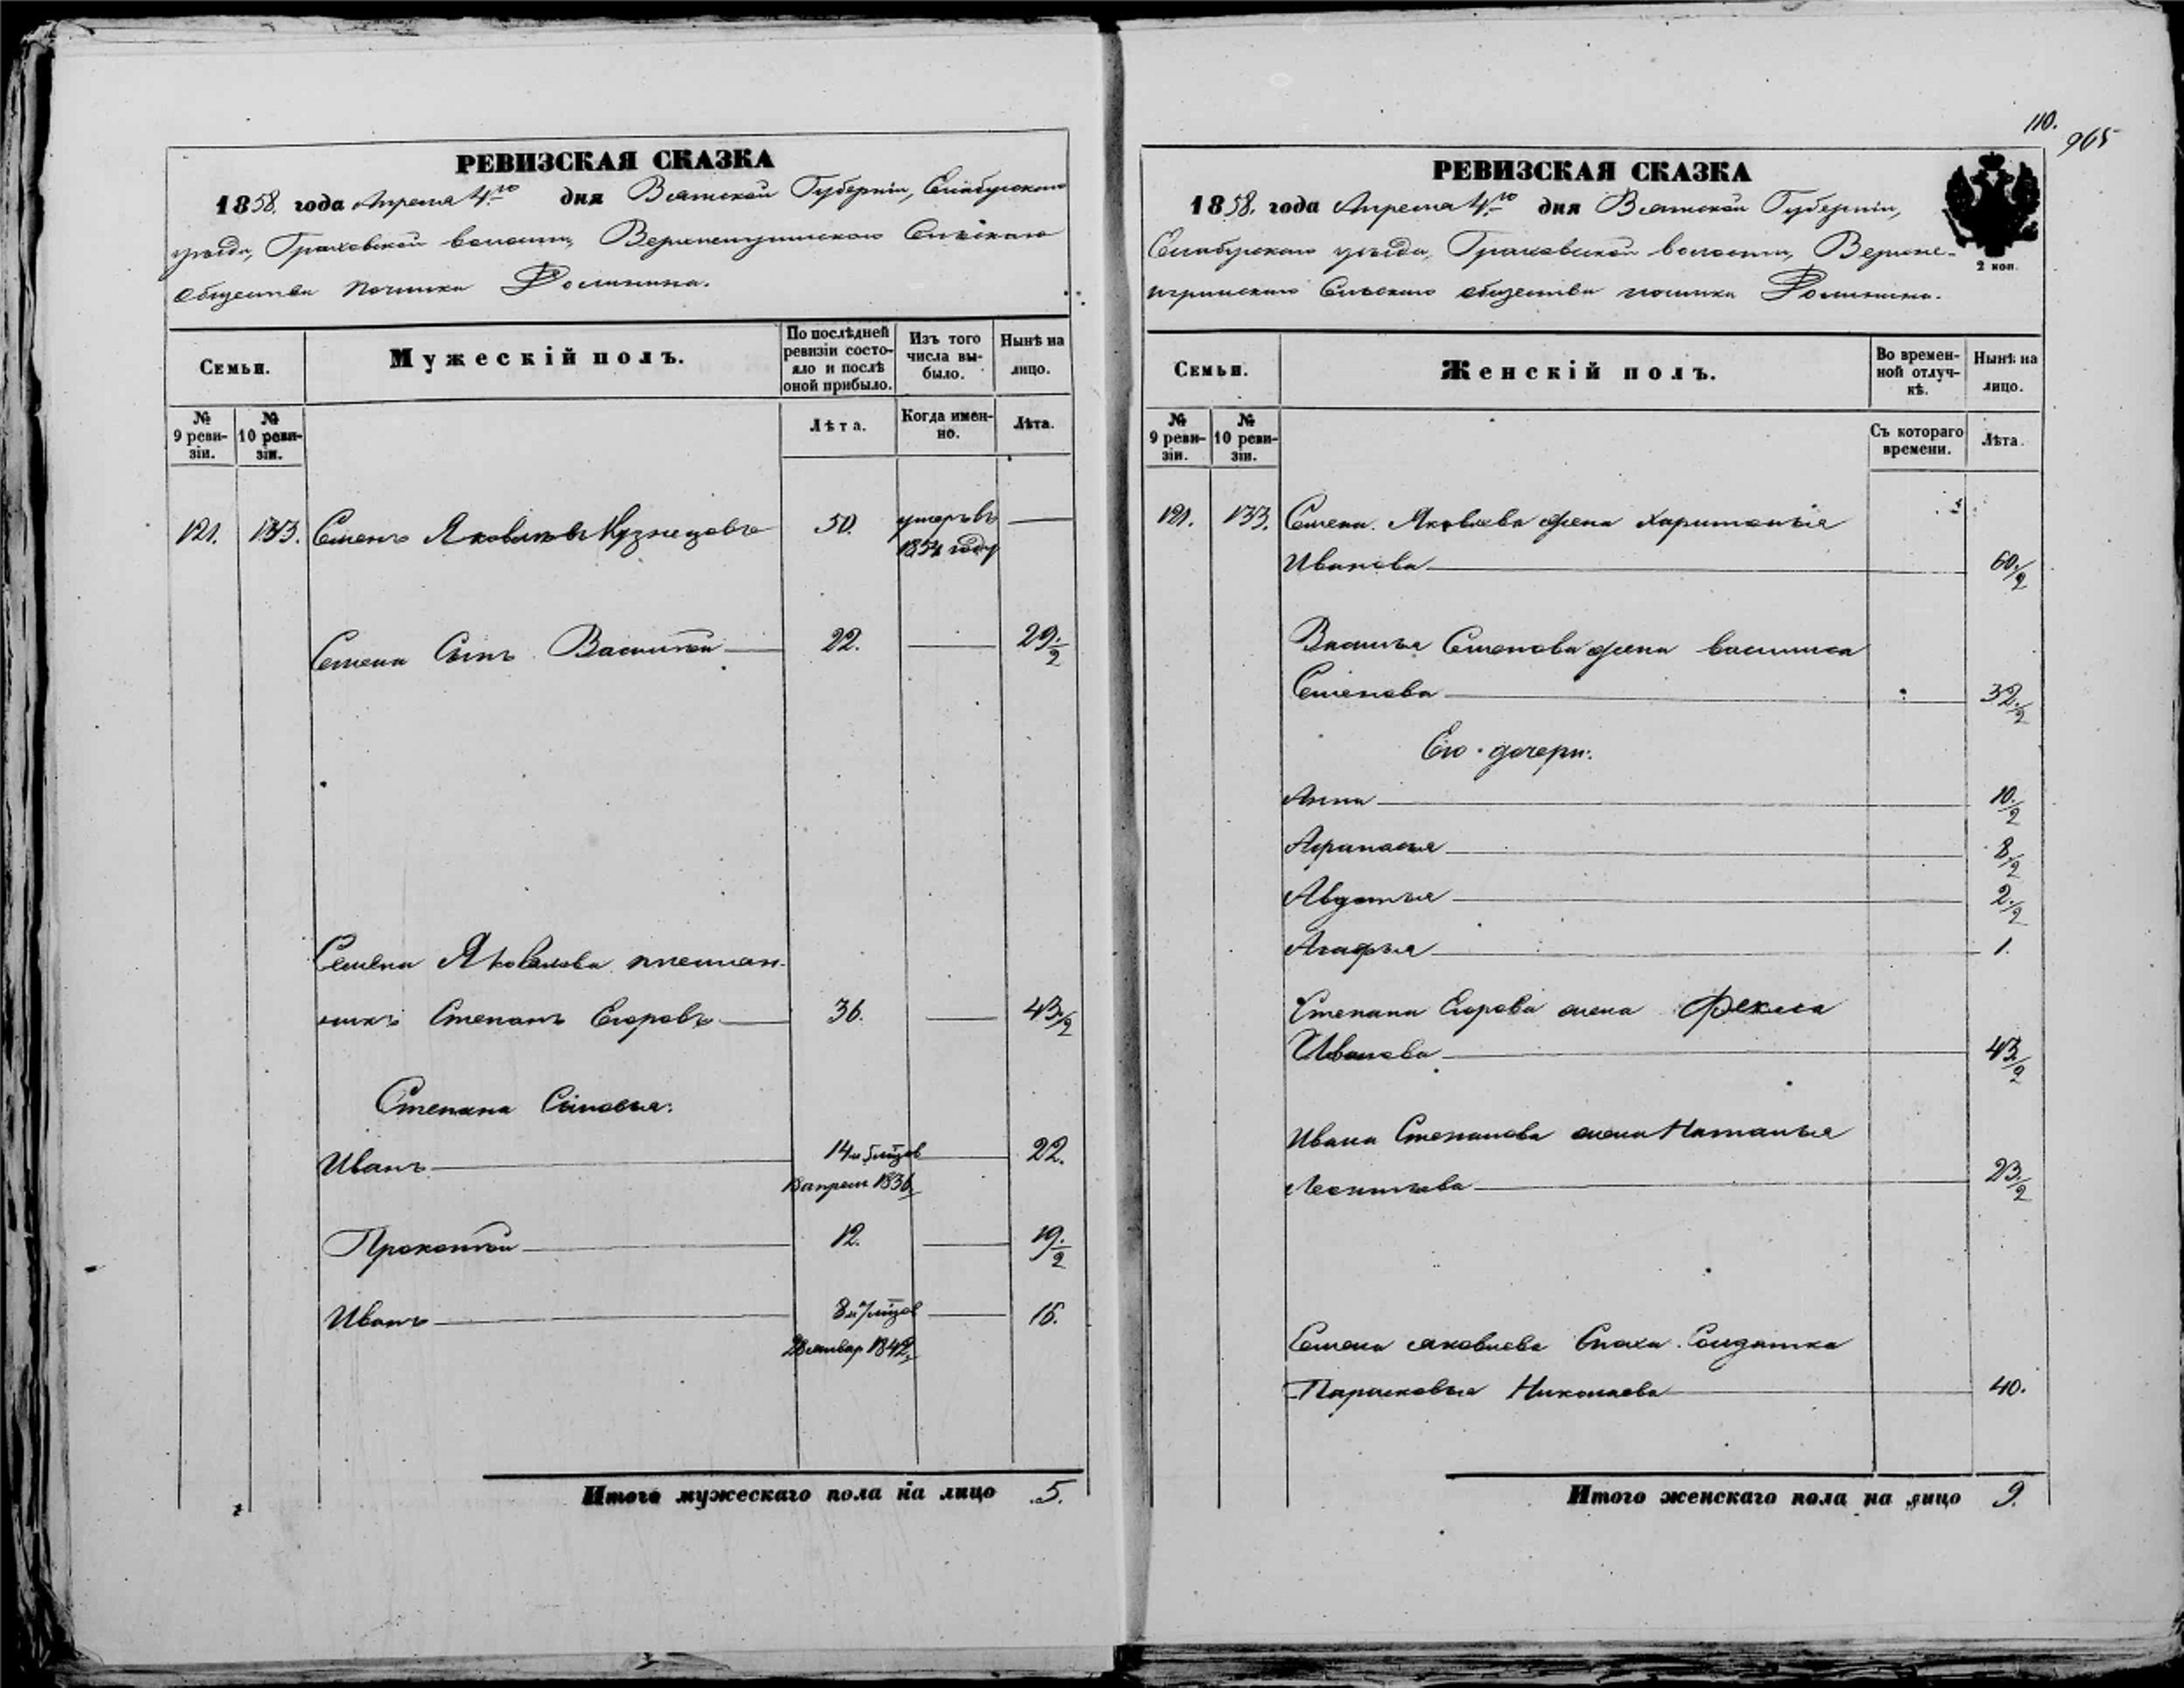 РЕВИЗСКАЯ СКАЗКА
1858. года Апреля 4го дня Вятской Губерніи, Елабужскаго
уѣзда, Граховской волости, Сельскаго
общества починка
Семьи.
Мужескій полъ.
По послѣдней ревизіи состояло и послѣ оной прибыло.
Изъ того числа выбыло.
Нынѣ на лицо.
№ 9 ревизіи.
№ 10 ревизіи.
Лѣта.
Когда именно.
Лѣта.
121. 133. Семенъ Яковлевъ Кузнецовъ 50. умеръ въ 1854 году —
Семена Сынъ Василій 22. — 29./2
Семена Яковлева племян-
никъ Степанъ Егоровъ 36. — 43./2
Степана Сыновья:
Иванъ 14 и 5 мѣцов 22.
13 апреля 1836
Прокопій 12. — 19./2
Иванъ 8 и 7 мѣцов — 16.
28 январ 1842
Итого мужескаго пола на лицо 5.
110.
965
РЕВИЗСКАЯ СКАЗКА
1858. года Апреля 4го дня Вятской Губерніи,
Елабужскаго уѣзда, Граховской волости,
Сельскаго общества починка
2 коп.
Семьи.
Женскій полъ.
Во временной отлучкѣ.
Нынѣ на лицо.
№ 9 ревизіи.
№ 10 ревизіи.
Съ котораго времени.
Лѣта.
121. 133. Семена Яковлева жена Харитонья
Иванова 60./2
Василья Семенова жена Василиса
Семенова 32./2
Его дочери:
Анна 10./2
Афанасья 8./2
Авдотья 2./2
Агафья 1.
Степана Егорова жена Фекла
Иванова 43./2
Ивана Степанова жена Наталья
Леонтьева 23./2
Семена Яковлева Сноха Солдатка
Парасковья Николаева 40.
Итого женскаго пола на лицо 9.